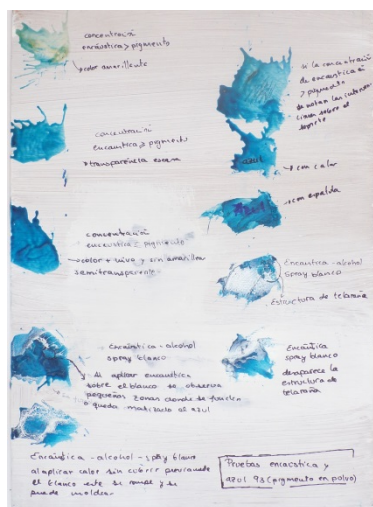 concentración
encáustica > pigmento
color amarillento
concentración
encaustica > pigmento
transparencia escasa
concentración
encaustica > pigmento
color + vivo y sin amarillear
semitransparente
Encáustica - alcohol
spray blanco
Al aplicar encaustica
sobre el blanco se observa
pequeñas zonas donde se
queda matizado el azul
Encáustica - alcohol - spray blanco
al aplicar calor sin cubrir
el blanco este se rompe y se
puede moldear
si la concentración
de encaustica
> pigmento
se notan las
sobre el
soporte
azul
con calor
Azul
con espalda
Encáustica - alcohol
spray blanco
Estructura de telaraña
Encáustica
spray blanco
desaparece la
estructura de
telaraña
Pruebas encaustica y
azul 93 (pigmento en polvo)